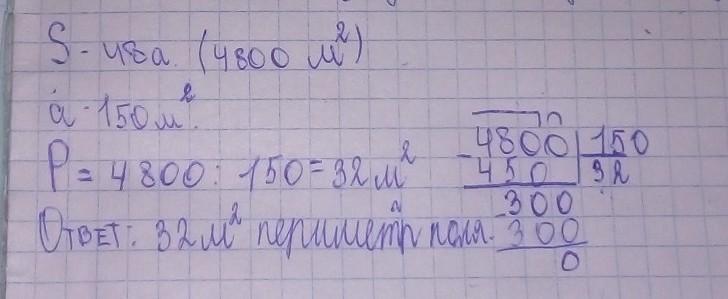 S - 48а. (4800 м²)
а - 150 м².
P = 4800 : 150 = 32 м²
Ответ: 32 м² периметр поля.
4800 | 150
- 450 | 32
- 300
300
0